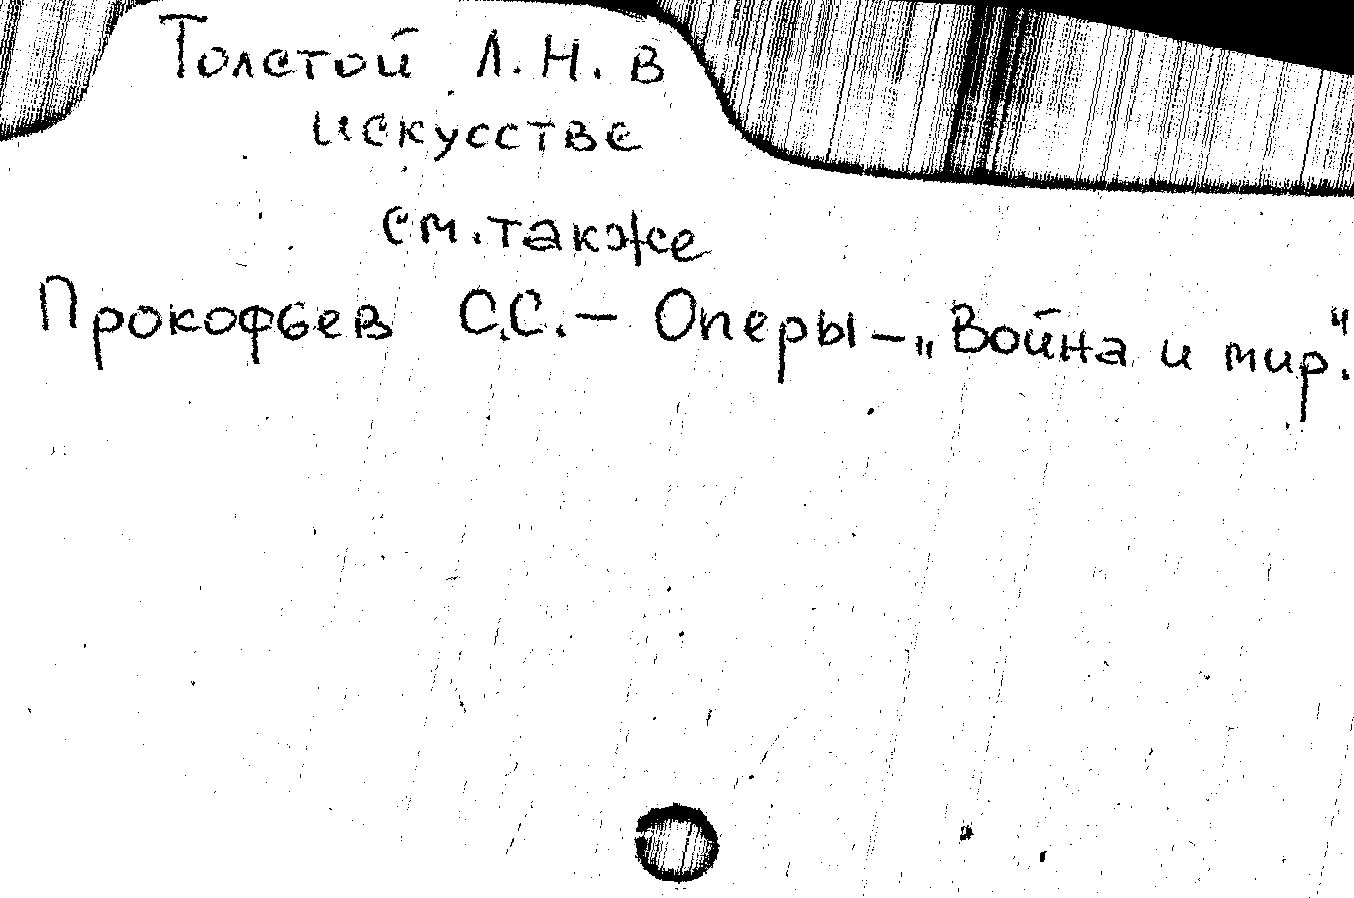 Толстой Л.Н. в
искусстве
см. также
Прокофьев С.С. — Оперы — „Война и мир".